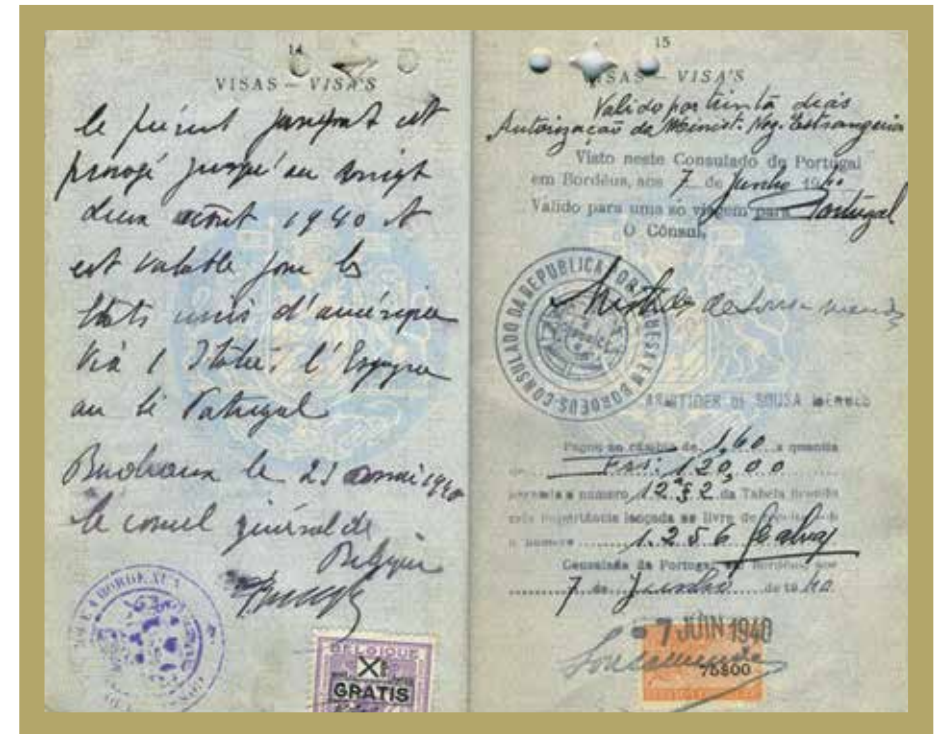 14
VISAS — VISA'S
le présent passeport est
prorogé jusqu'au vingt
deux août 1940 et
est valable pour les
Etats unis d'amérique
via l'Italie, l'Espagne
ou le Portugal
Bordeaux le 23 mai 1940
le consul général de
Belgique
BORDEAUX
BELGIQUE
GRATIS
15
VISAS — VISA'S
Valido por trinta dias
Autorização do Minist. Neg. Estrangeiros
Visto neste Consulado de Portugal
em Bordéus, aos 7 de Junho 1940
Valido para uma só viagem para Portugal
O Cônsul,
Aristides de Sousa Mendes
CONSULADO DA REPUBLICA PORTUGUESA EM BORDEUS
ARISTIDES DE SOUSA MENDES
Pagou ao câmbio de 1,60 a quantia
de Frs: 120,00
numero 12 § 2 da Tabela
importância lançada no livro de
o numero 1.256
Consulado de Portugal em Bordéus, aos
7 de Junho de 1940
7 JUIN 1940
Sousa Mendes
75$00